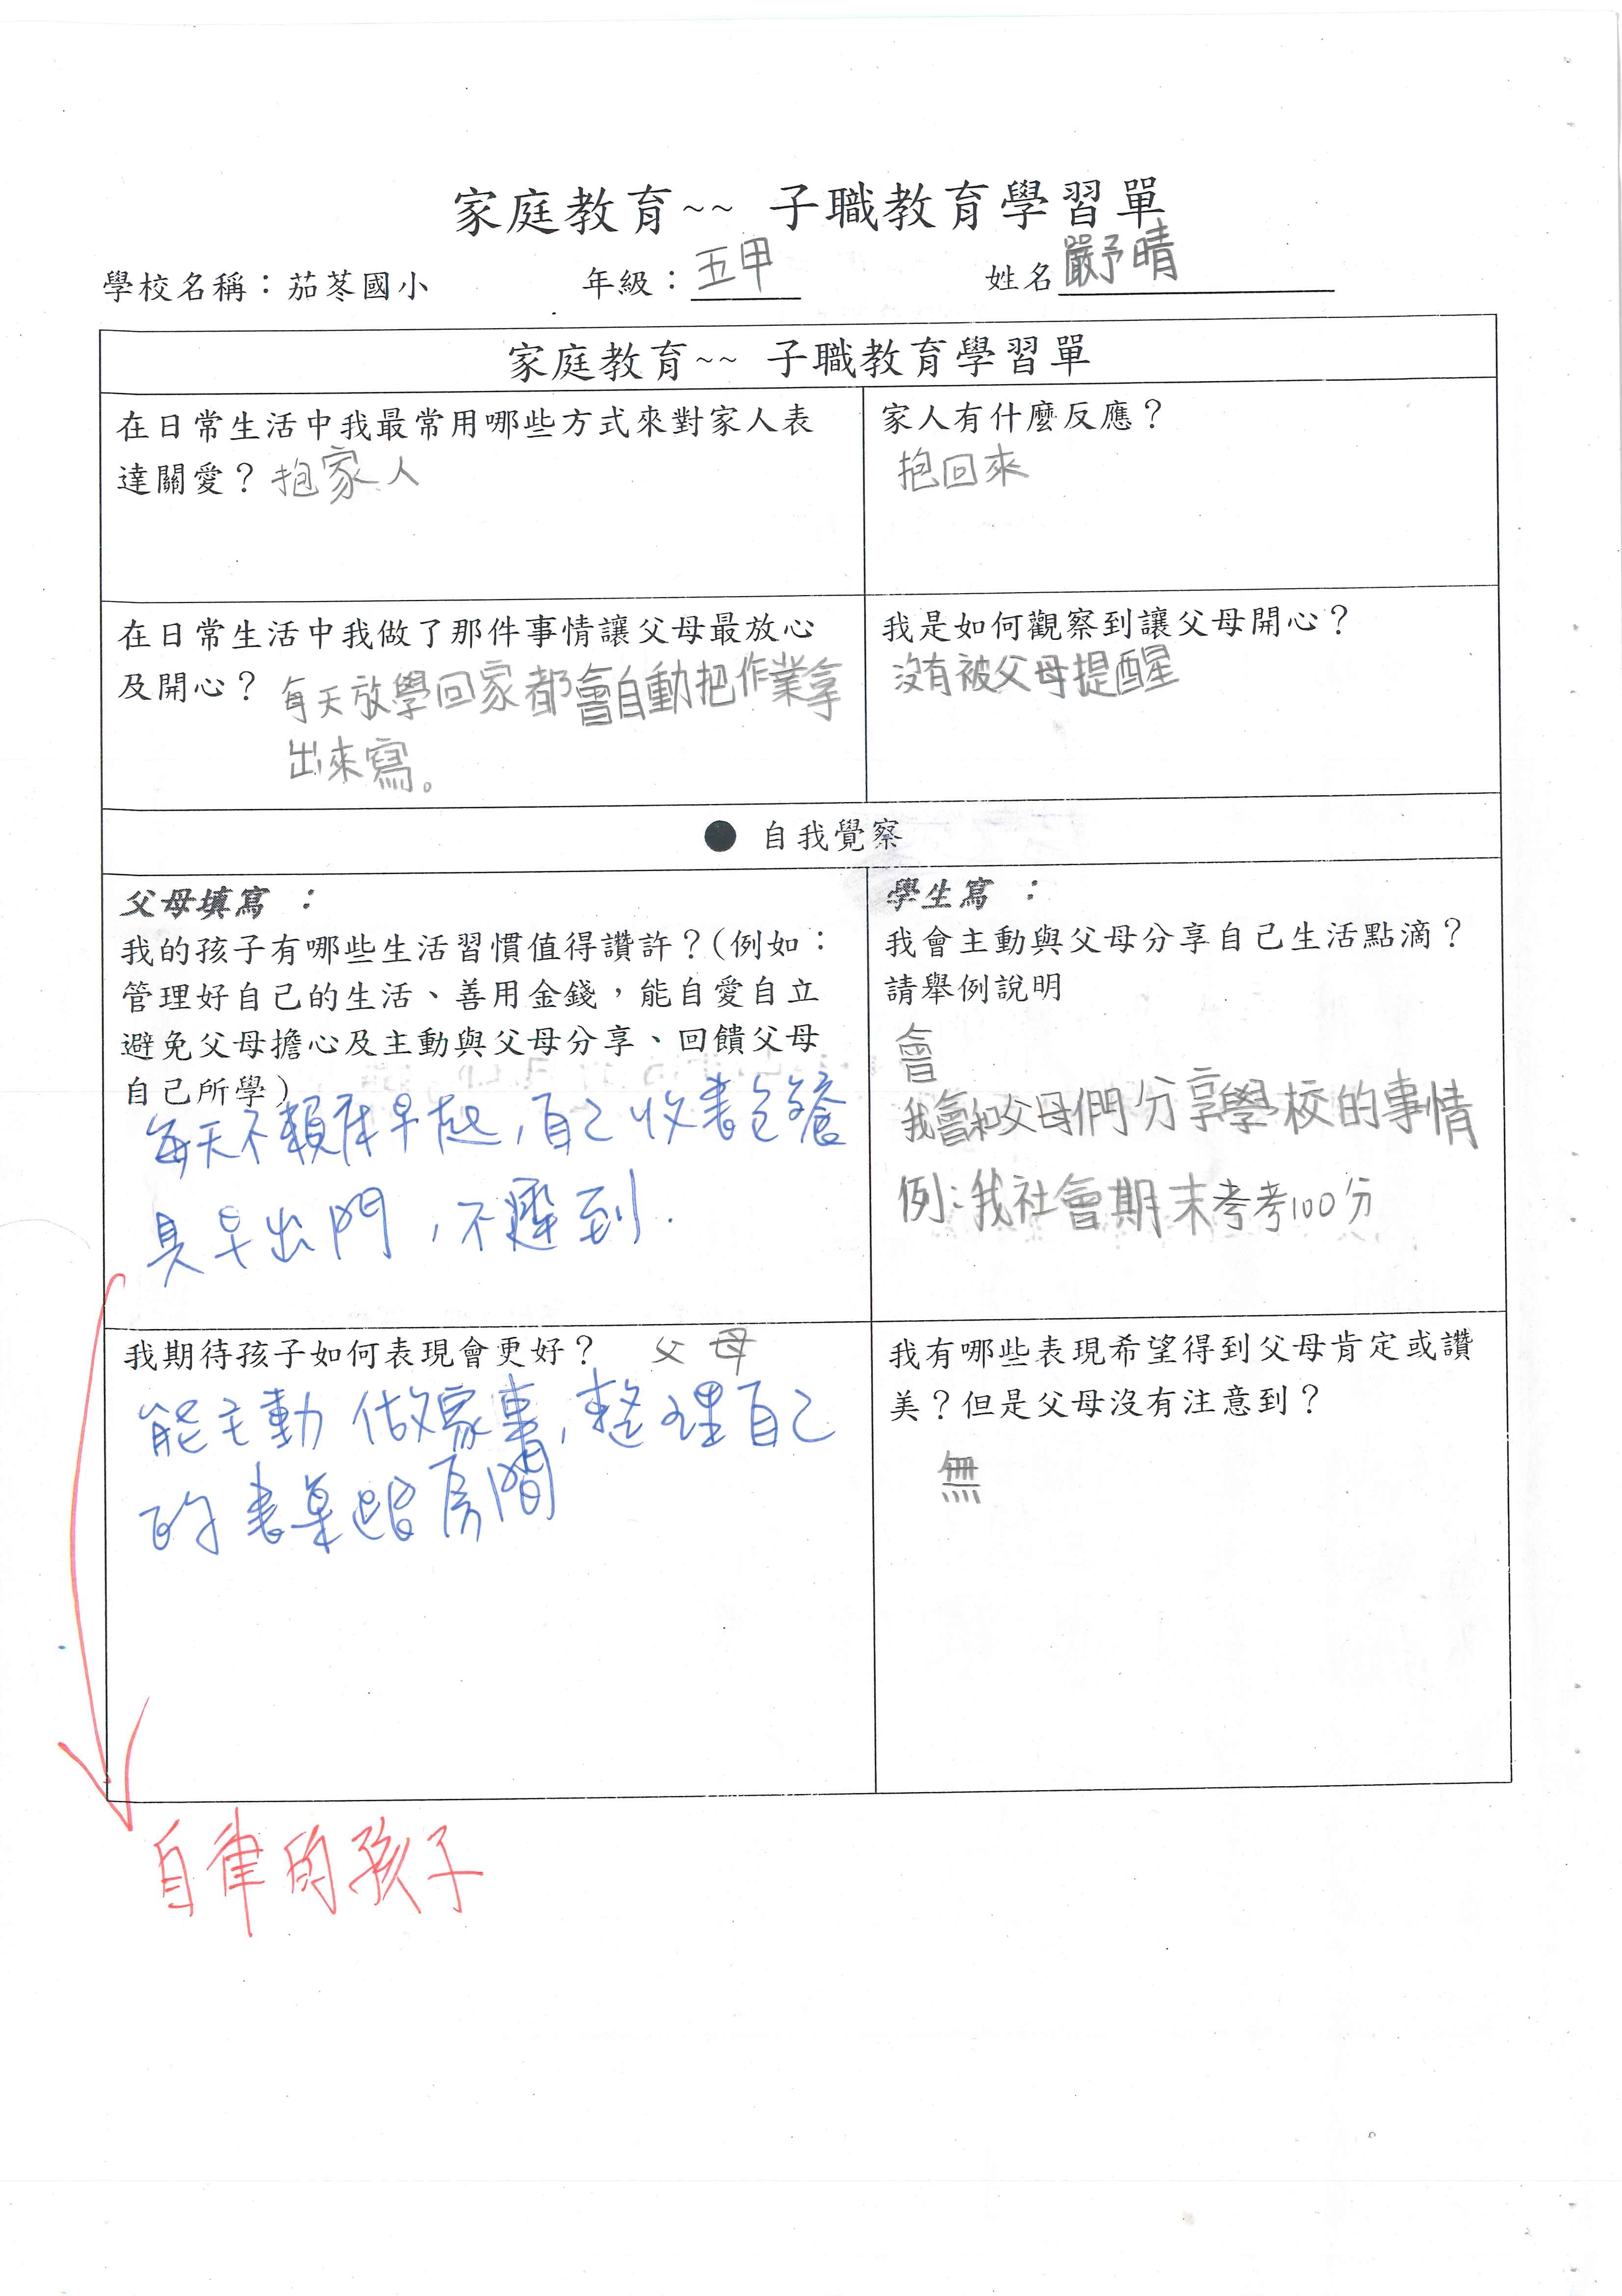 家庭教育~~ 子職教育學習單
學校名稱：茄苳國小 年級：五甲 姓名嚴予晴
家庭教育~~ 子職教育學習單
在日常生活中我最常用哪些方式來對家人表
達關愛？抱家人
家人有什麼反應？
抱回來
在日常生活中我做了那件事情讓父母最放心
及開心？每天放學回家都會自動把作業拿
出來寫。
我是如何觀察到讓父母開心？
沒有被父母提醒
● 自我覺察
父母填寫 ：
我的孩子有哪些生活習慣值得讚許？(例如：
管理好自己的生活、善用金錢，能自愛自立
避免父母擔心及主動與父母分享、回饋父母
自己所學)
每天不賴床早起，自己收書包餐
具早出門，不遲到.
學生寫 ：
我會主動與父母分享自己生活點滴？
請舉例說明
會
我會和父母們分享學校的事情
例:我社會期末考考100分
我期待孩子如何表現會更好？ 父母
能主動做家事，整理自己
的書桌跟房間
我有哪些表現希望得到父母肯定或讚
美？但是父母沒有注意到？
無
自律的孩子